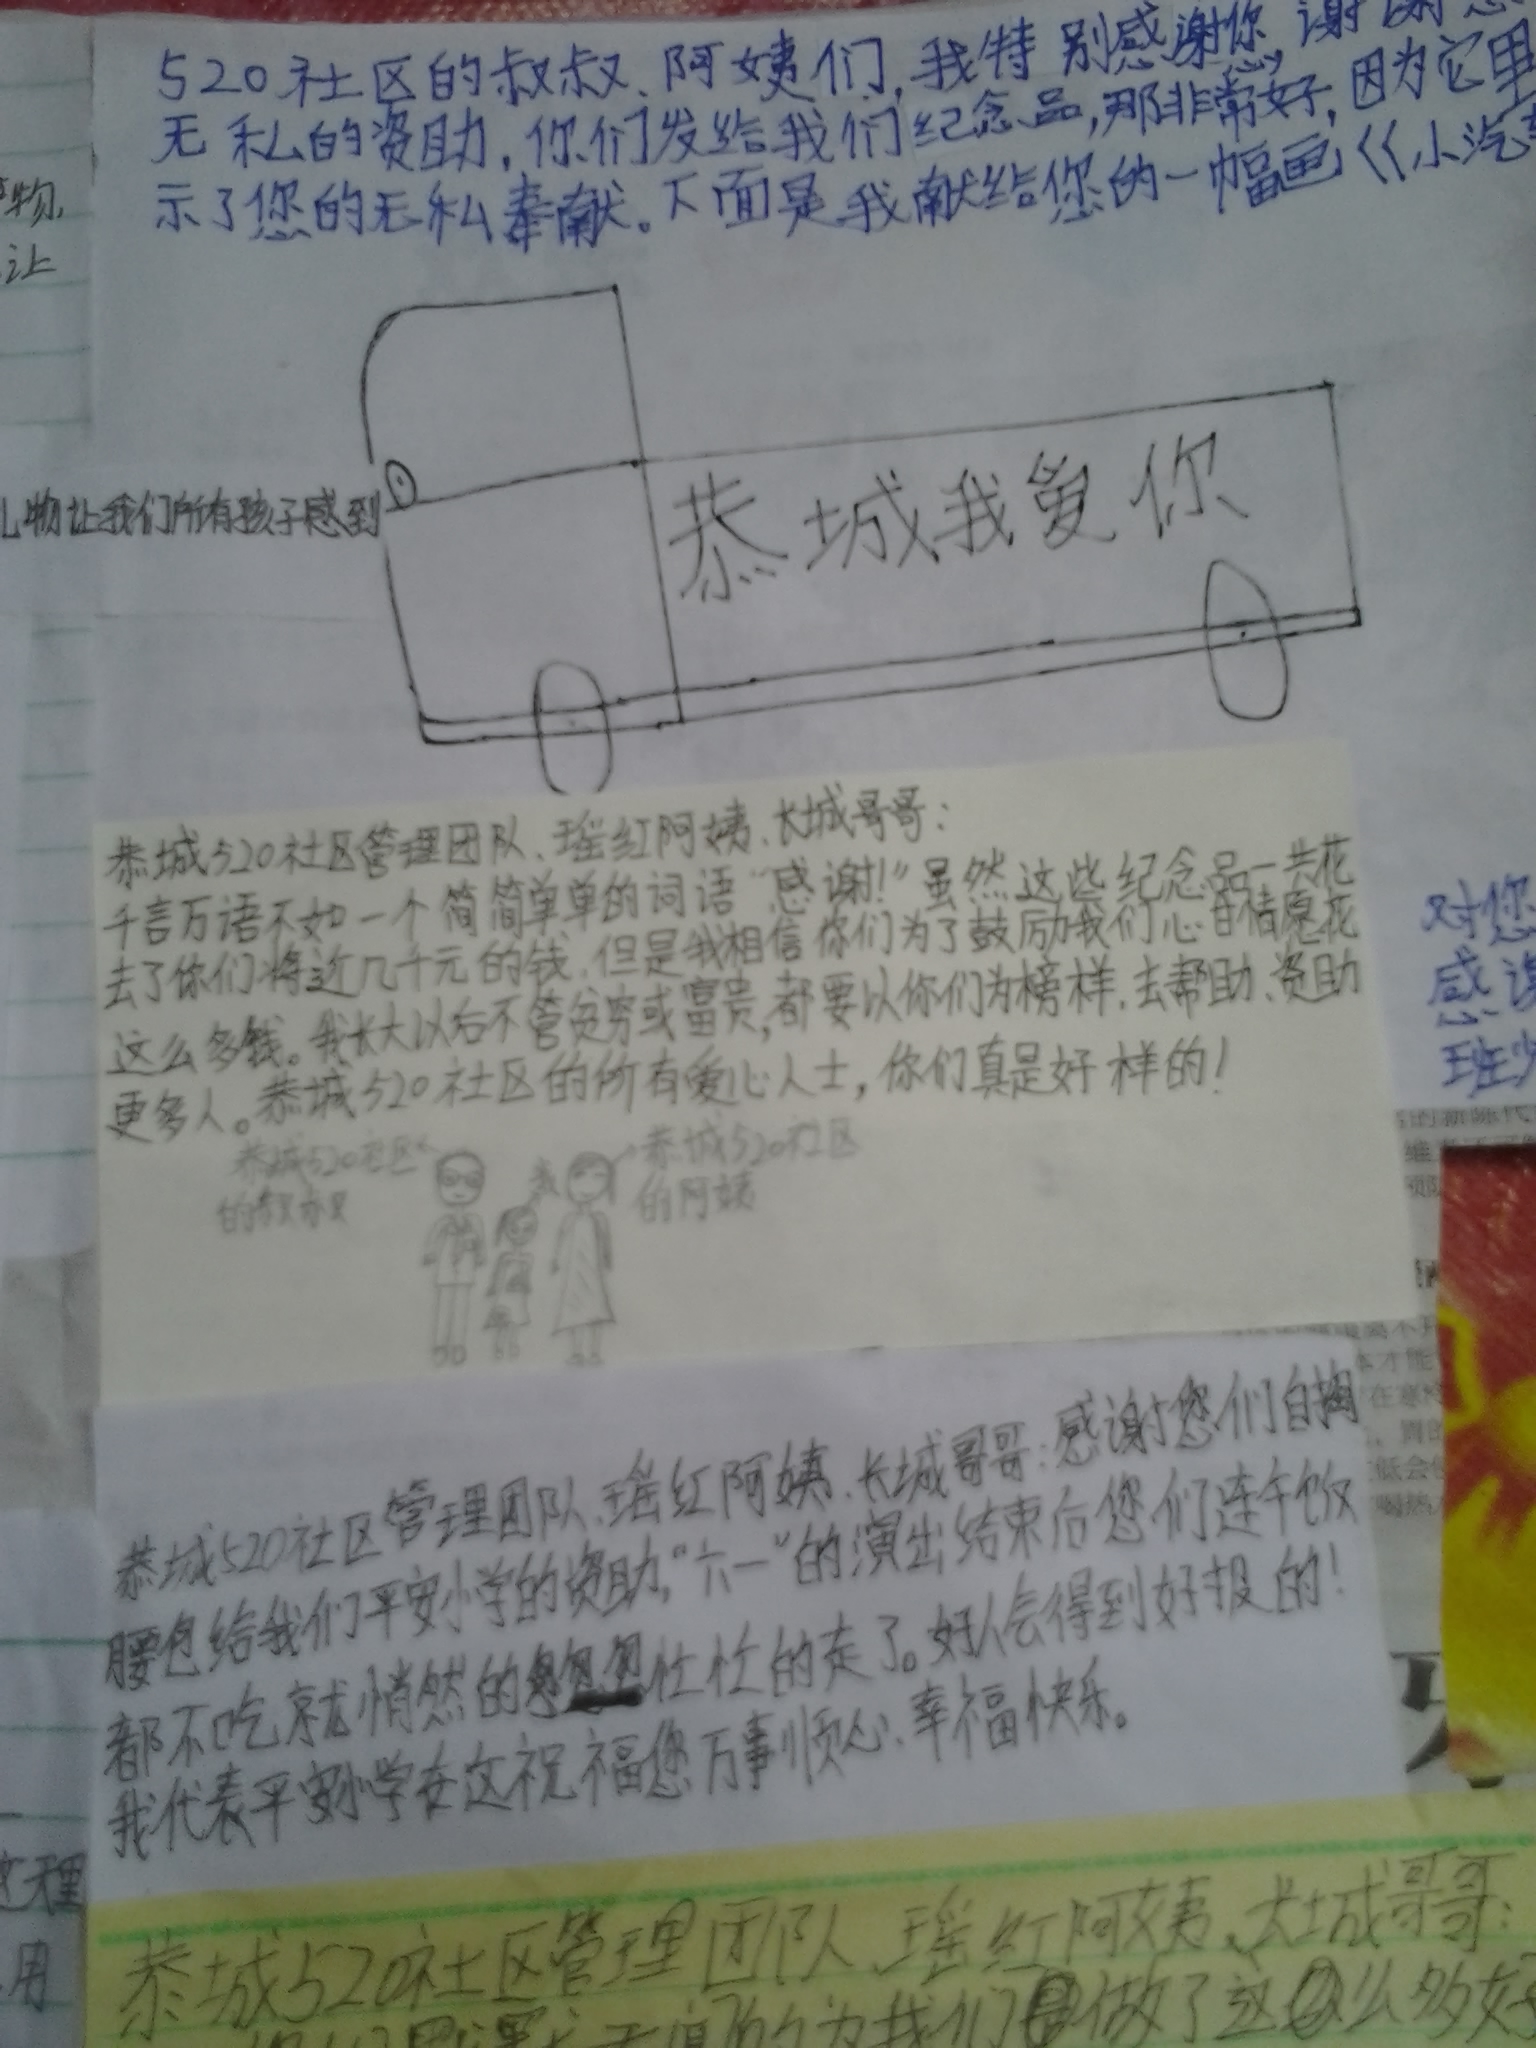 520社区的叔叔、阿姨们,我特别感谢您,谢谢您
无私的资助,你们发给我们纪念品,那非常好,因为它里
示了您的无私奉献。下面是我献给您的一幅画《小汽
物
让
礼物让我们所有孩子感到
恭城我爱你
恭城520社区管理团队、瑶红阿姨、长城哥哥:
千言万语不如一个简简单单的词语“感谢!”虽然这些纪念品一共花
去了你们将近几千元的钱,但是我相信你们为了鼓励我们心甘情愿花
这么多钱。我长大以后不管贫穷或富贵,都要以你们为榜样,去帮助、资助
更多人。恭城520社区的所有爱心人士,你们真是好样的!
恭城520社区
的叔叔
我
恭城520社区
的阿姨
对您
感谢
恭城520社区管理团队、瑶红阿姨、长城哥哥:感谢您们自掏
腰包给我们平安小学的资助,“六一”的演出结束后您们连午饭
都不吃就悄然的忙忙的走了。好人会得到好报的!
我代表平安小学在这祝福您万事顺心、幸福快乐。
这种
用
恭城520社区管理团队、瑶红阿姨、长城哥哥:
为我们做了这么多好